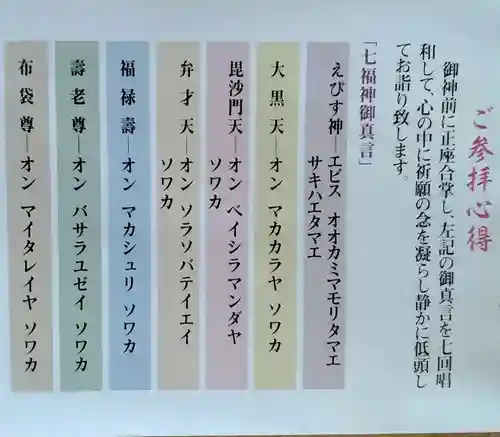 ご参拝心得
御神前に正座合掌し、左記の御真言を七回唱
和して、心の中に祈願の念を凝らし静かに低頭し
てお詣り致します。
「七福神御真言」
えびす神―エビス オオカミマモリタマエ
サキハエタマエ
大黒天―オン マカカラヤ ソワカ
毘沙門天―オン ベイシラマンダヤ
ソワカ
弁才天―オン ソラソバテイエイ
ソワカ
福禄壽―オン マカシュリ ソワカ
壽老尊―オン バサラユゼイ ソワカ
布袋尊―オン マイタレイヤ ソワカ